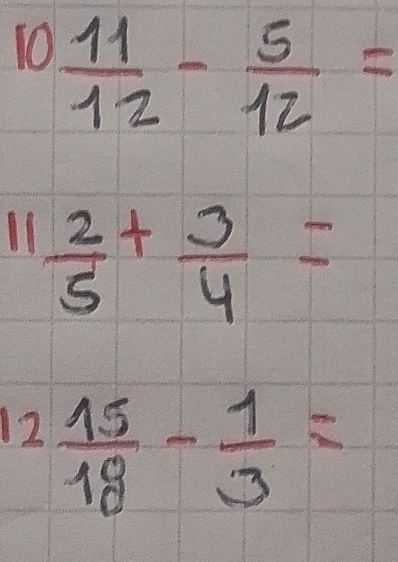 10 11/12 - 5/12 =
11 2/5 + 3/4 =
12 15/18 - 1/3 =